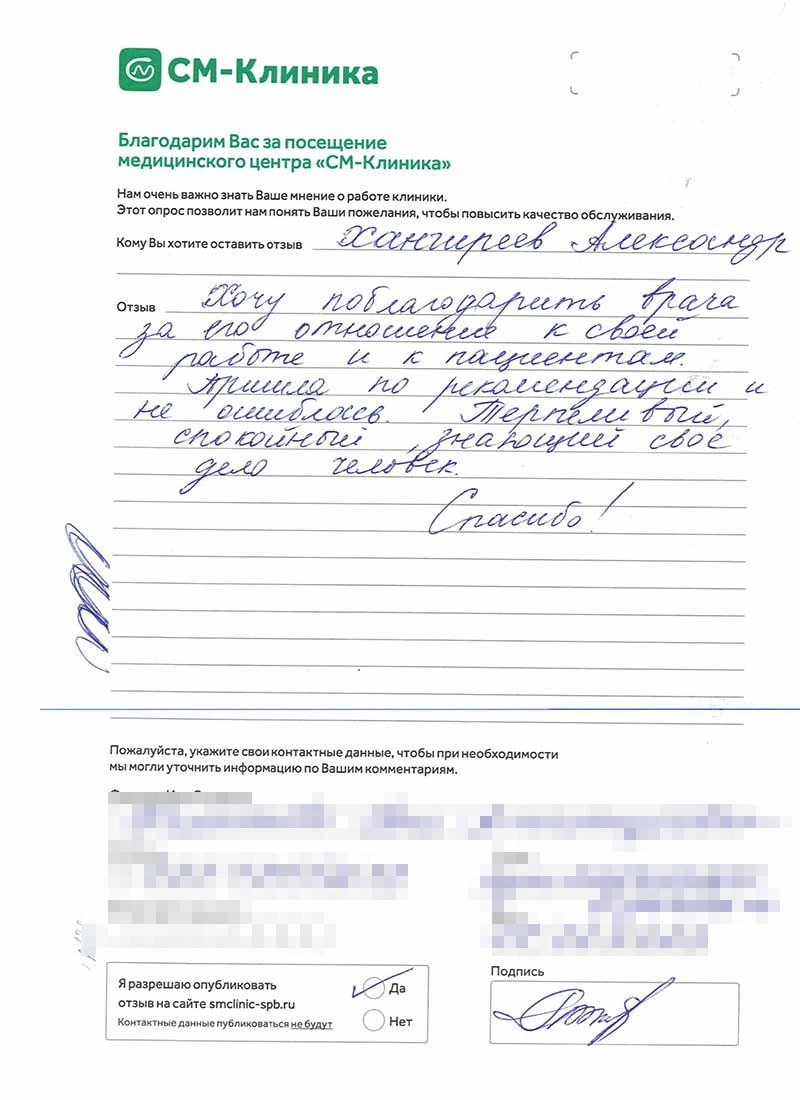 СМ-Клиника
Благодарим Вас за посещение
медицинского центра «СМ-Клиника»
Нам очень важно знать Ваше мнение о работе клиники.
Этот опрос позволит нам понять Ваши пожелания, чтобы повысить качество обслуживания.
Кому Вы хотите оставить отзыв Хангиреев Александр
Отзыв Хочу поблагодарить врача
за его отношение к своей
работе и к пациентам.
Пришла по рекомендации и
не ошиблась. Терпеливый,
спокойный, знающий своё
дело человек.
Спасибо!
Пожалуйста, укажите свои контактные данные, чтобы при необходимости
мы могли уточнить информацию по Вашим комментариям.
Я разрешаю опубликовать
отзыв на сайте smclinic-spb.ru
Контактные данные публиковаться не будут
Да
Нет
Подпись